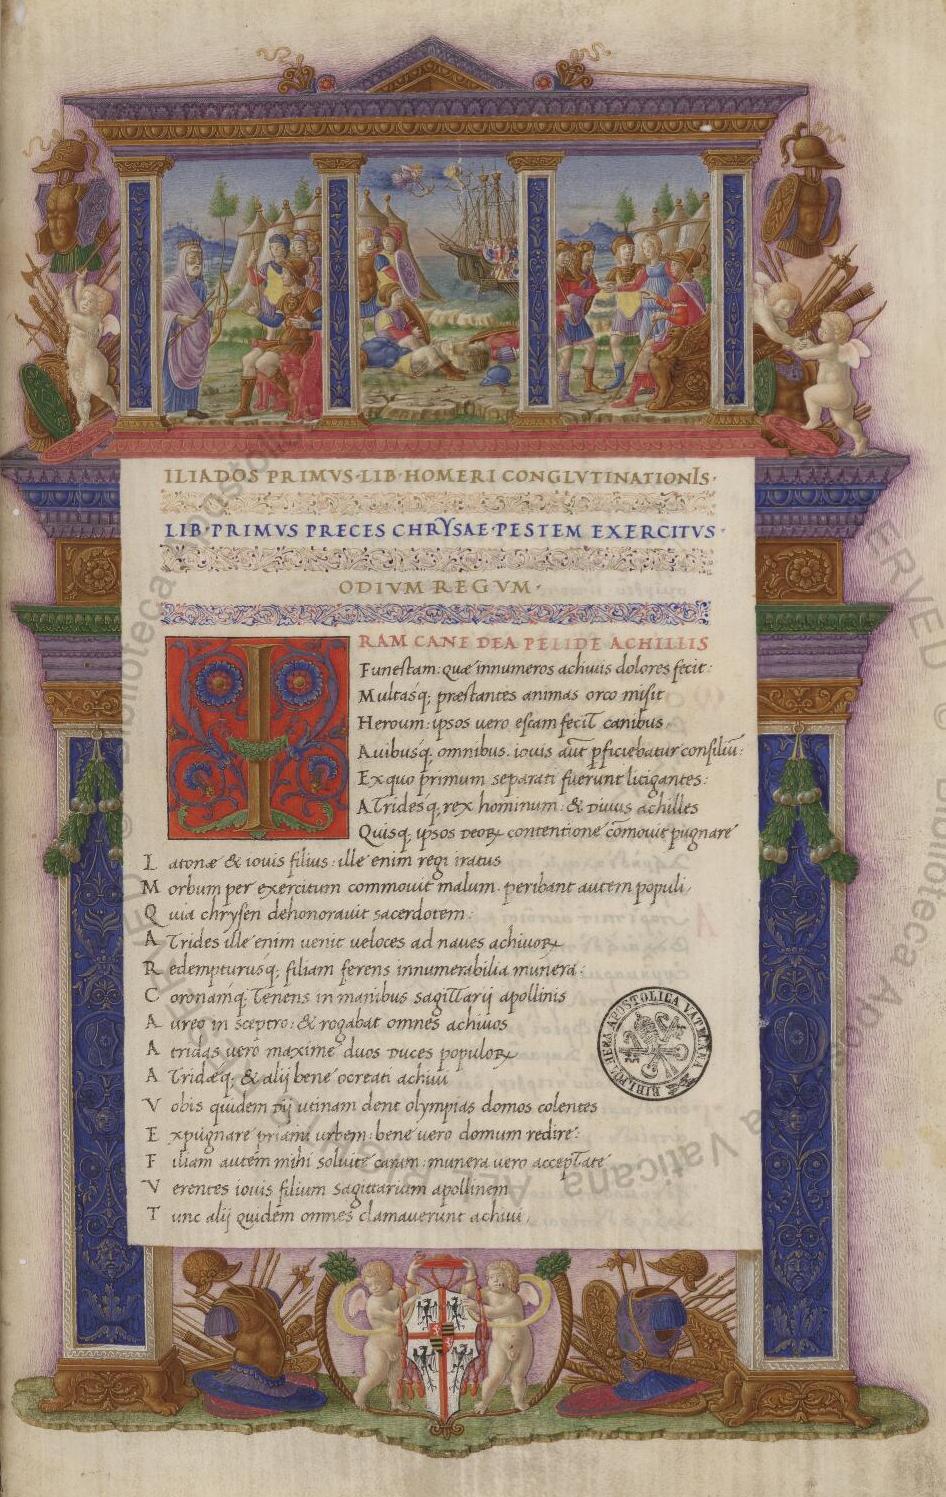 ILIADOS PRIMVS·LIB·HOMERI CONGLVTINATIONIS·
LIB·PRIMVS PRECES CHRYSAE·PESTEM EXERCITVS·
ODIVM REGVM·
IRAM CANE DEA PELIDE ACHILLIS
Funestam: quæ innumeros achiuis dolores fecit:
Multasq; præstantes animas orco misit
Heroum: ipsos uero escam fecit canibus
Auibusq; omnibus. iouis aut̄ pficiebatur consiliū:
Ex quo primum separati fuerunt litigantes:
ATridesq; rex hominum: & diuus achilles
Quisq; ipsos deoꝝ contentione cōmouit pugnare
Latonæ & iouis filius: ille enim regi iratus
Morbum per exercitum commouit malum. peribant autem populi
Quia chrysen dehonorauit sacerdotem:
ATrides ille enim uenit ueloces ad naues achiuoꝝ
Redempturusq; filiam ferens innumerabilia munera:
Coronamq; tenens in manibus sagittarij apollinis
Aureo in sceptro: & rogabat omnes achiuos
Atridas uero maxime duos duces populoꝝ
ATridæq; & alij bene ocreati achiui
Vobis quidem dij utinam dent olympias domos colentes
Expugnare priami urbem: bene uero domum redire:
Filiam autem mihi soluite caram: munera uero acceptate
Verentes iouis filium sagittarium apollinem
Tunc alij quidem omnes clamauerunt achiui
BIBLIOTHECA APOSTOLICA VATICANA